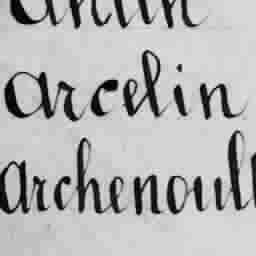 arcelin
archenoull